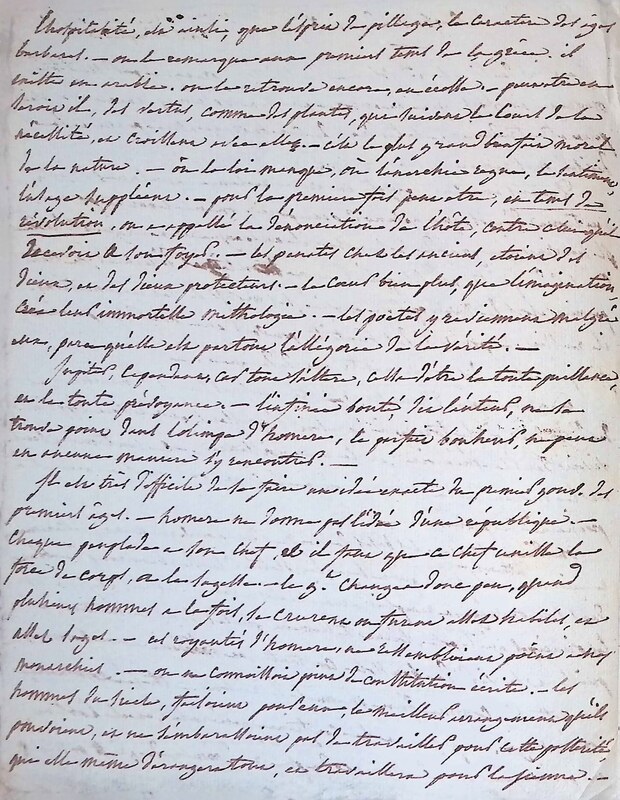 L'hospitalité, est ainsi, que l'esprit de pillage, le caractère des ages
barbares. — on le remarque aux premiers tems de la grèce. il
existe en arabie. on le retrouve encore, en écosse. — peut etre en
seroit il, des vertus, comme des plantes, qui suivent le cours de la
nécessité, et croissent avec elle. — c'est le plus grand bienfait moral
de la nature. — où la loi manque, où l'anarchie regne, le sentiment,
l'usage suppléent. — pour la premiere fois peut etre, en tems de
révolution, on a appellé la dénonciation de l'hôte, contre celui qu'il
recevoit à son foyer. — les penates chez les anciens, etoient des
dieux, et des dieux protecteurs. — le coeur bien plus, que l'imagination
créa leur immortelle mithologie. — les poetes y reviennent malgré
eux, parce qu'elle est partout l'allégorie de la vérité. —
Jupiter, cependant, est tout l'être, celle d'etre la toute puissance,
et la toute prévoyance. — l'infinie bonté du ne se
trouve point dans l'olimpe d'homere, le parfait bonheur, ne peut
en aucune maniere s'y rencontrer. —
Il est très difficile de se faire une idée exacte du premier gouvt. des
premiers ages. — homere ne donne pas l'idée d'une république. —
chaque peuplade a son chef, et il faut que ce chef unisse la
force du corps, ou la sagesse. — le gt. changea donc peu, quand
plusieurs hommes a la fois, se crurent ou furent assez habiles, et
assez sages. — les royautés d'homere, ne ressembloient point a nos
monarchies. — on ne connoissoit point de constitution écrite. — les
hommes du siecle, faisoient pour eux, le meilleur arrangement qu'ils
pouvoient, et ne s'embarassoient pas de travailler pour cette posterité,
qui elle même dérangera tout, et travaillera pour la sienne. —